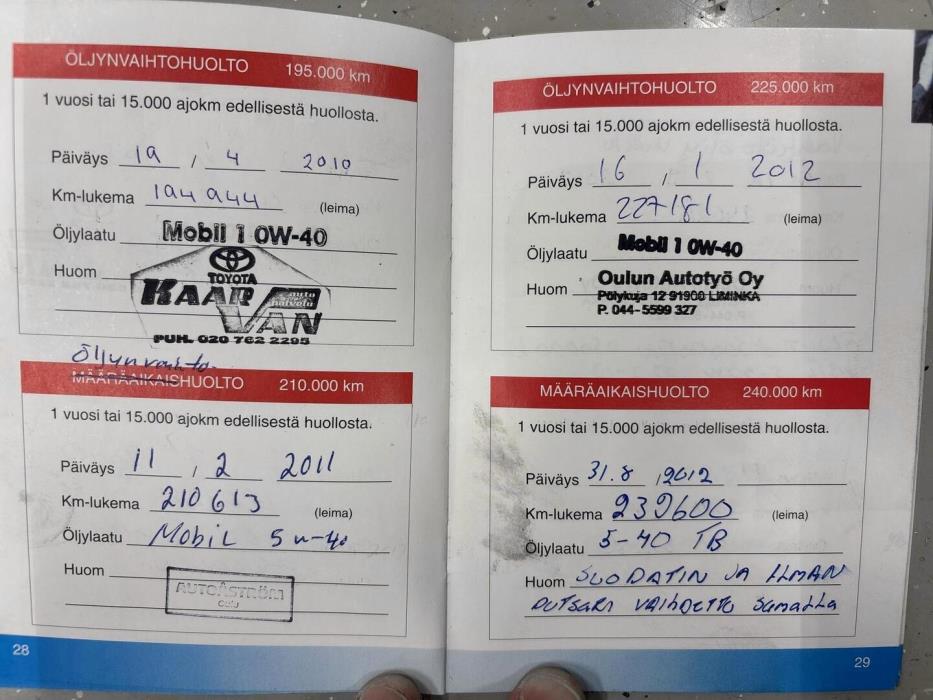 ÖLJYNVAIHTOHUOLTO 195.000 km
1 vuosi tai 15.000 ajokm edellisestä huollosta.
Päiväys 19 / 4 2010
Km-lukema 194944 (leima)
Öljylaatu Mobil 1 0W-40
Huom
TOYOTA
KAAR auto
VAN
PUH. 020 762 2295
Öljynvaihto
MÄÄRÄAIKAISHUOLTO 210.000 km
1 vuosi tai 15.000 ajokm edellisestä huollosta.
Päiväys 11 / 2 2011
Km-lukema 210613 (leima)
Öljylaatu Mobil 5w-40
Huom
AUTOÅSTRÖM
Oulu
28
ÖLJYNVAIHTOHUOLTO 225.000 km
1 vuosi tai 15.000 ajokm edellisestä huollosta.
Päiväys 16 / 1 2012
Km-lukema 227181 (leima)
Öljylaatu Mobil 1 0W-40
Huom Oulun Autotyö Oy
Pölykuja 12 91900 LIMINKA
P. 044-5599 327
MÄÄRÄAIKAISHUOLTO 240.000 km
1 vuosi tai 15.000 ajokm edellisestä huollosta.
Päiväys 31.8 / 2012
Km-lukema 239600 (leima)
Öljylaatu 5-40 TB
Huom SUODATIN JA ILMAN
PUTSARI VAIHDETTU SAMALLA
29